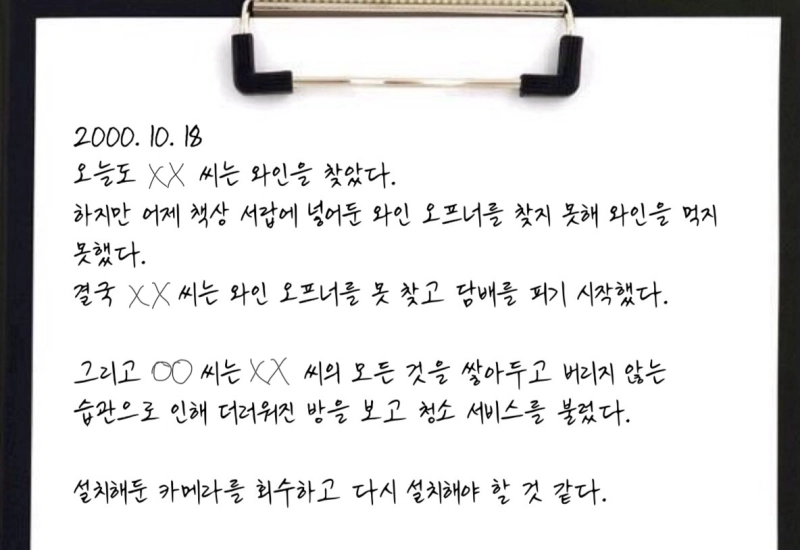 2000. 10. 18
오늘도 XX 씨는 와인을 찾았다.
하지만 어제 책상 서랍에 넣어둔 와인 오프너를 찾지 못해 와인을 먹지
못했다.
결국 XX 씨는 와인 오프너를 못 찾고 담배를 피기 시작했다.
그리고 OO 씨는 XX 씨의 모든 것을 쌓아두고 버리지 않는
습관으로 인해 더러워진 방을 보고 청소 서비스를 불렀다.
설치해둔 카메라를 회수하고 다시 설치해야 할 것 같다.